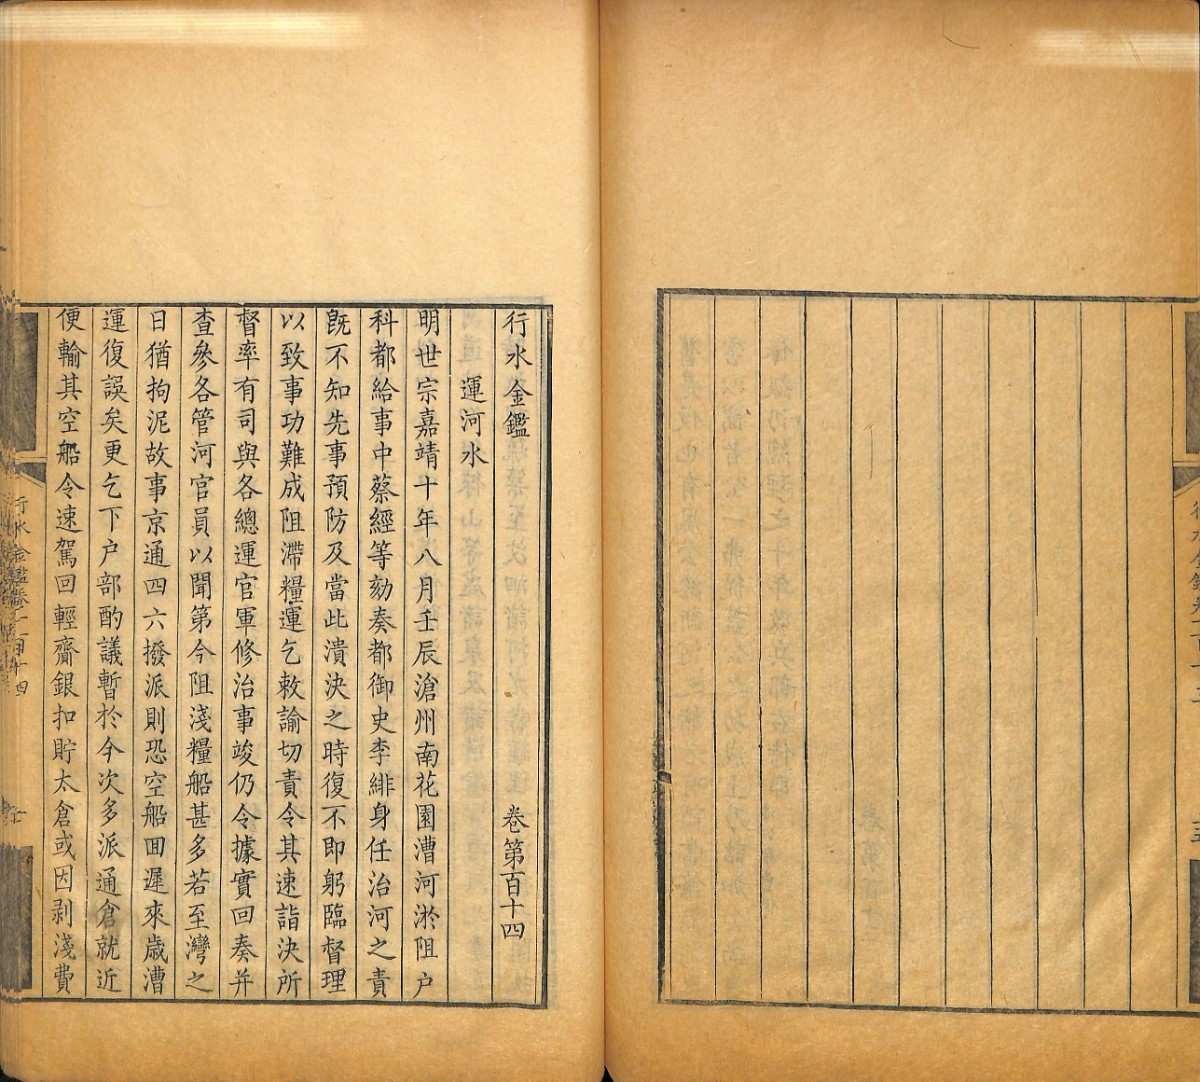 行水金鑑 卷第百十四
運河水
明世宗嘉靖十年八月壬辰滄州南花園漕河淤阻户
科都給事中蔡經等劾奏都御史李緋身任治河之責
既不知先事預防及當此潰決之時復不即躬臨督理
以致事功難成阻滯糧運乞敕諭切責令其速詣決所
督率有司與各總運官軍修治事竣仍令據實回奏并
查參各管河官員以聞第今阻淺糧船甚多若至灣之
日猶拘泥故事京通四六撥派則恐空船囬遲來歲漕
運復誤矣更乞下户部酌議暫於今次多派通倉就近
便輸其空船令速駕回輕齎銀扣貯太倉或因剥淺費
行水金鑑卷一百十四